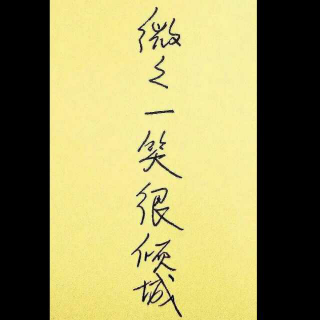 微々一笑很倾城